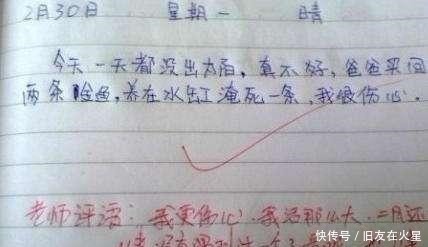 2月30日 星期一 晴
今天一天都没出太阳，真不好，爸爸买回
两条金鱼，养在水缸淹死一条，我很伤心.
老师评语：我更伤心.我活那么大.二月还
快传号 / 旧友在火星